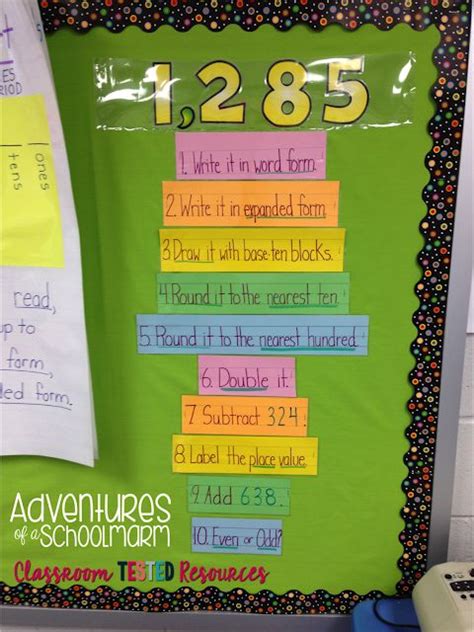 ES
RIOD
tens
ones
read,
up to
form,
ded form.
1,285
1. Write it in word form.
2. Write it in expanded form
3. Draw it with base-ten blocks.
4. Round it to the nearest ten.
5. Round it to the nearest hundred.
6. Double it.
7. Subtract 324.
8. Label the place value.
9. Add 638.
10. Even or Odd?
Adventures
of a Schoolmarm
Classroom TESTED Resources